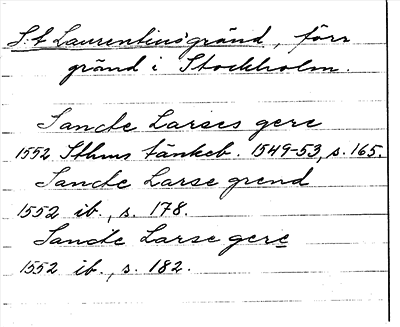 S:t Laurentius' gränd, förr
gränd i Stockholm.
Sancte Larses gere
1552 Sthms tänkeb. 1549-53, s. 165.
Sancte Larse grend
1552 ib., s. 178.
Sancte Larse gere
1552 ib., s. 182.